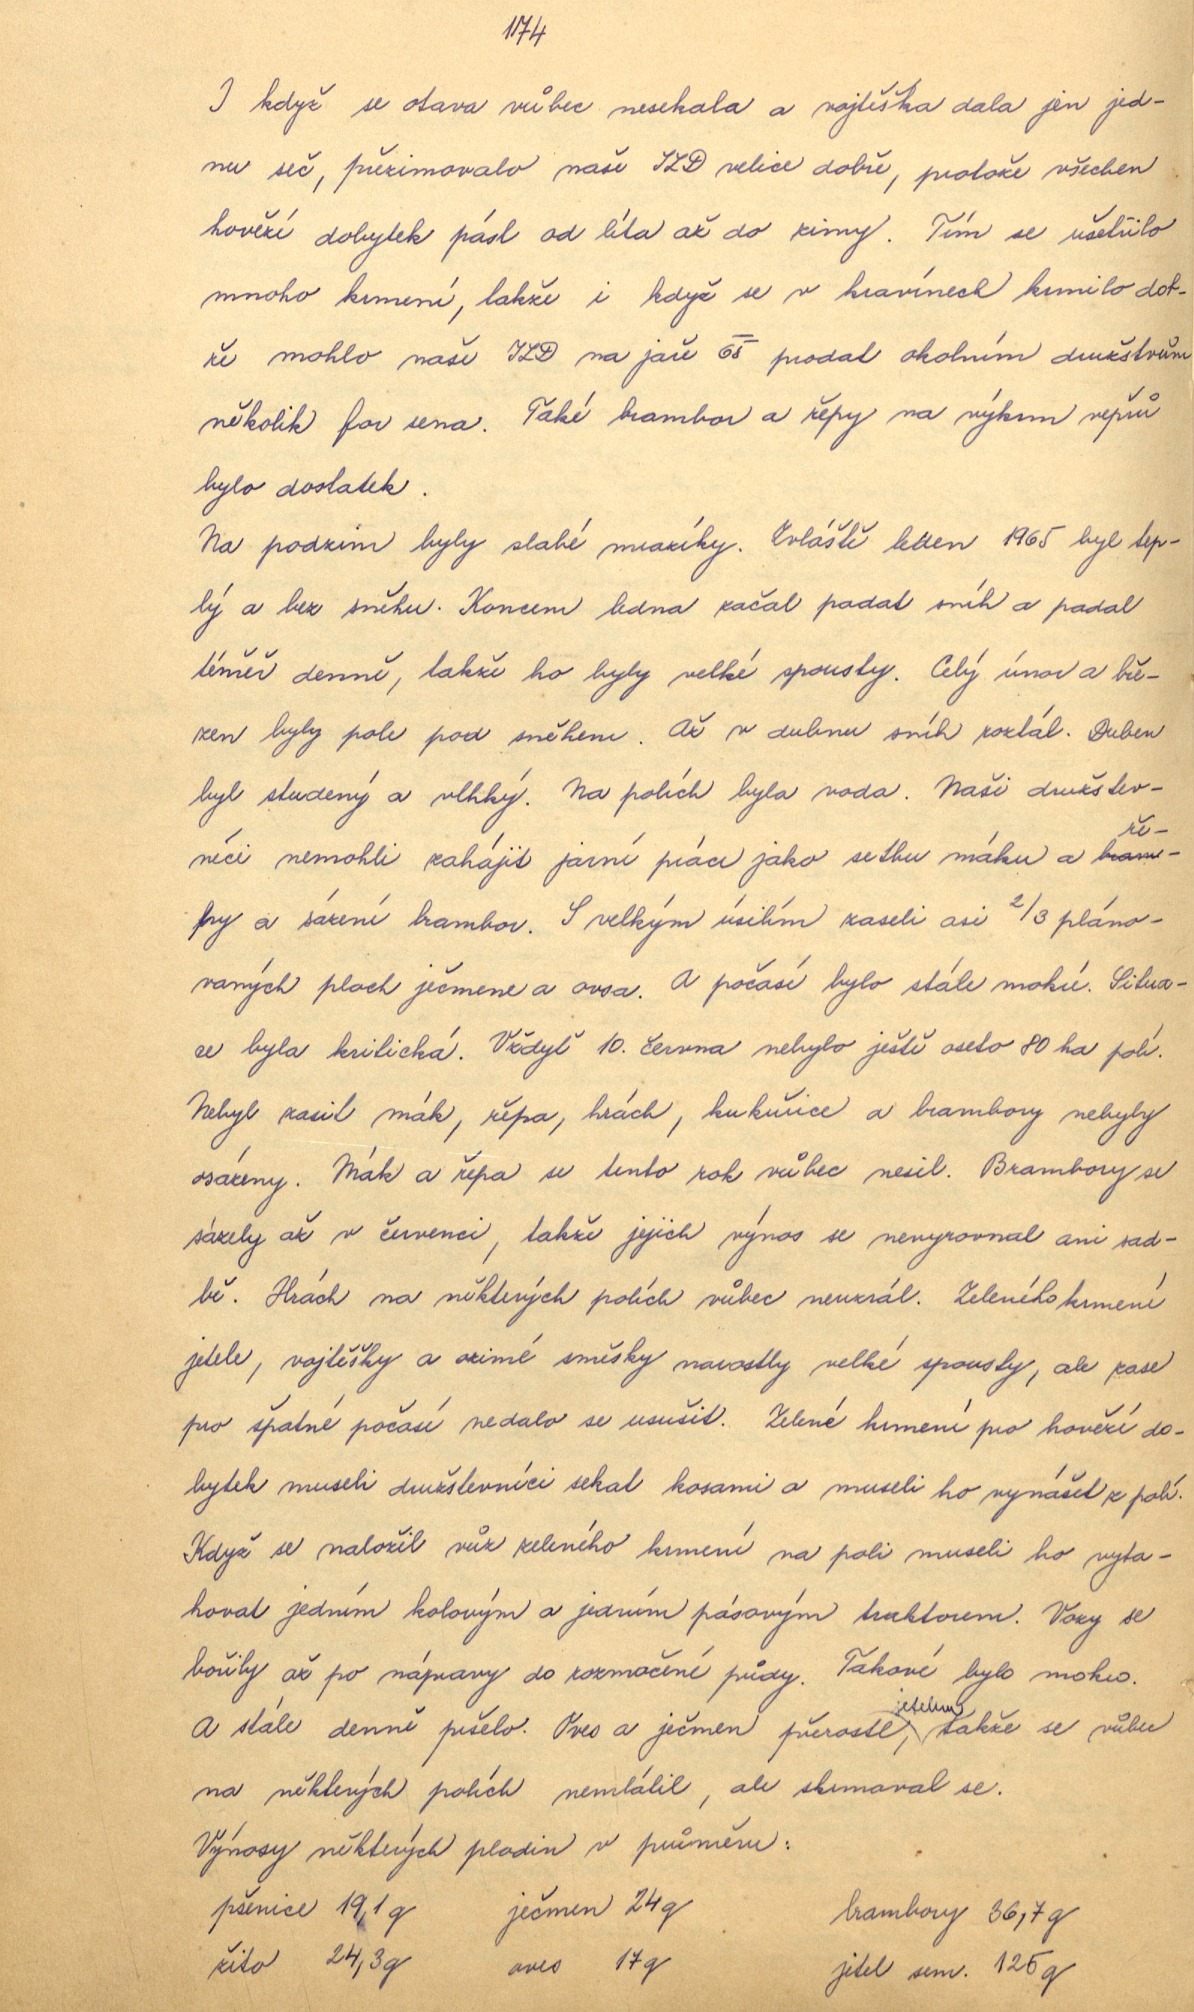 174
I když se otava vůbec nesekala a vojtěška dala jen jed-
nu seč, přezimovalo naše JZD velice dobře, protože všechen
hovězí dobytek pásl od léta až do zimy. Tím se ušetřilo
mnoho krmení, takže i když se v kravínech krmilo dob-
ře mohlo naše JZD na jaře 65 prodat okolním družstvům
několik for sena. Také brambor a řepy na výkrm vepřů
bylo dostatek.
Na podzim byly slabé mrazíky. Zvláště leden 1965 byl tep-
lý a bez sněhu. Koncem ledna začal padat sníh a padal
téměř denně, takže ho byly velké spousty. Celý únor a bře-
zen byly pole pod sněhem. Až v dubnu sníh roztál. Duben
byl studený a vlhký. Na polích byla voda. Naši družstev-
níci nemohli zahájit jarní práce jako setbu máku a ře-
py a sázení brambor. S velkým úsilím zaseli asi 2/3 pláno-
vaných ploch ječmene a ovsa. A počasí bylo stále mokré. Situa-
ce byla kritická. Vždyť 10. června nebylo ještě oseto 80 ha polí.
Nebyl zasil mák, řépa, hrách, kukuřice a brambory nebyly
osázeny. Mák a řepa se tento rok vůbec nesil. Brambory se
sázely až v červenci, takže jejich výnos se nevyrovnal ani sad-
bě. Hrách na některých polích vůbec neuzrál. Zeleného krmení
jetele, vojtěšky a ozimé směsky narostly velké spousty, ale zase
pro špatné počasí nedalo se usušit. Zelené krmení pro hovězí do-
bytek museli družstevníci sekat kosami a museli ho vynášet z polí.
Když se naložil vůz zeleného krmení na poli museli ho vyta-
hovat jedním kolovým a jedním pásovým traktorem. Vozy se
bořily až po nápravy do rozmočené půdy. Takové bylo mokro.
A stále denně pršelo. Oves a ječmen přerostl jetelem, takže se vůbec
na některých polích nemlátil, ale skrmoval se.
Výnosy některých plodin v průměru:
pšenice 19,1 q ječmen 24 q brambory 36,7 q
žito 24,3 q oves 17 q jetel sem. 125 q